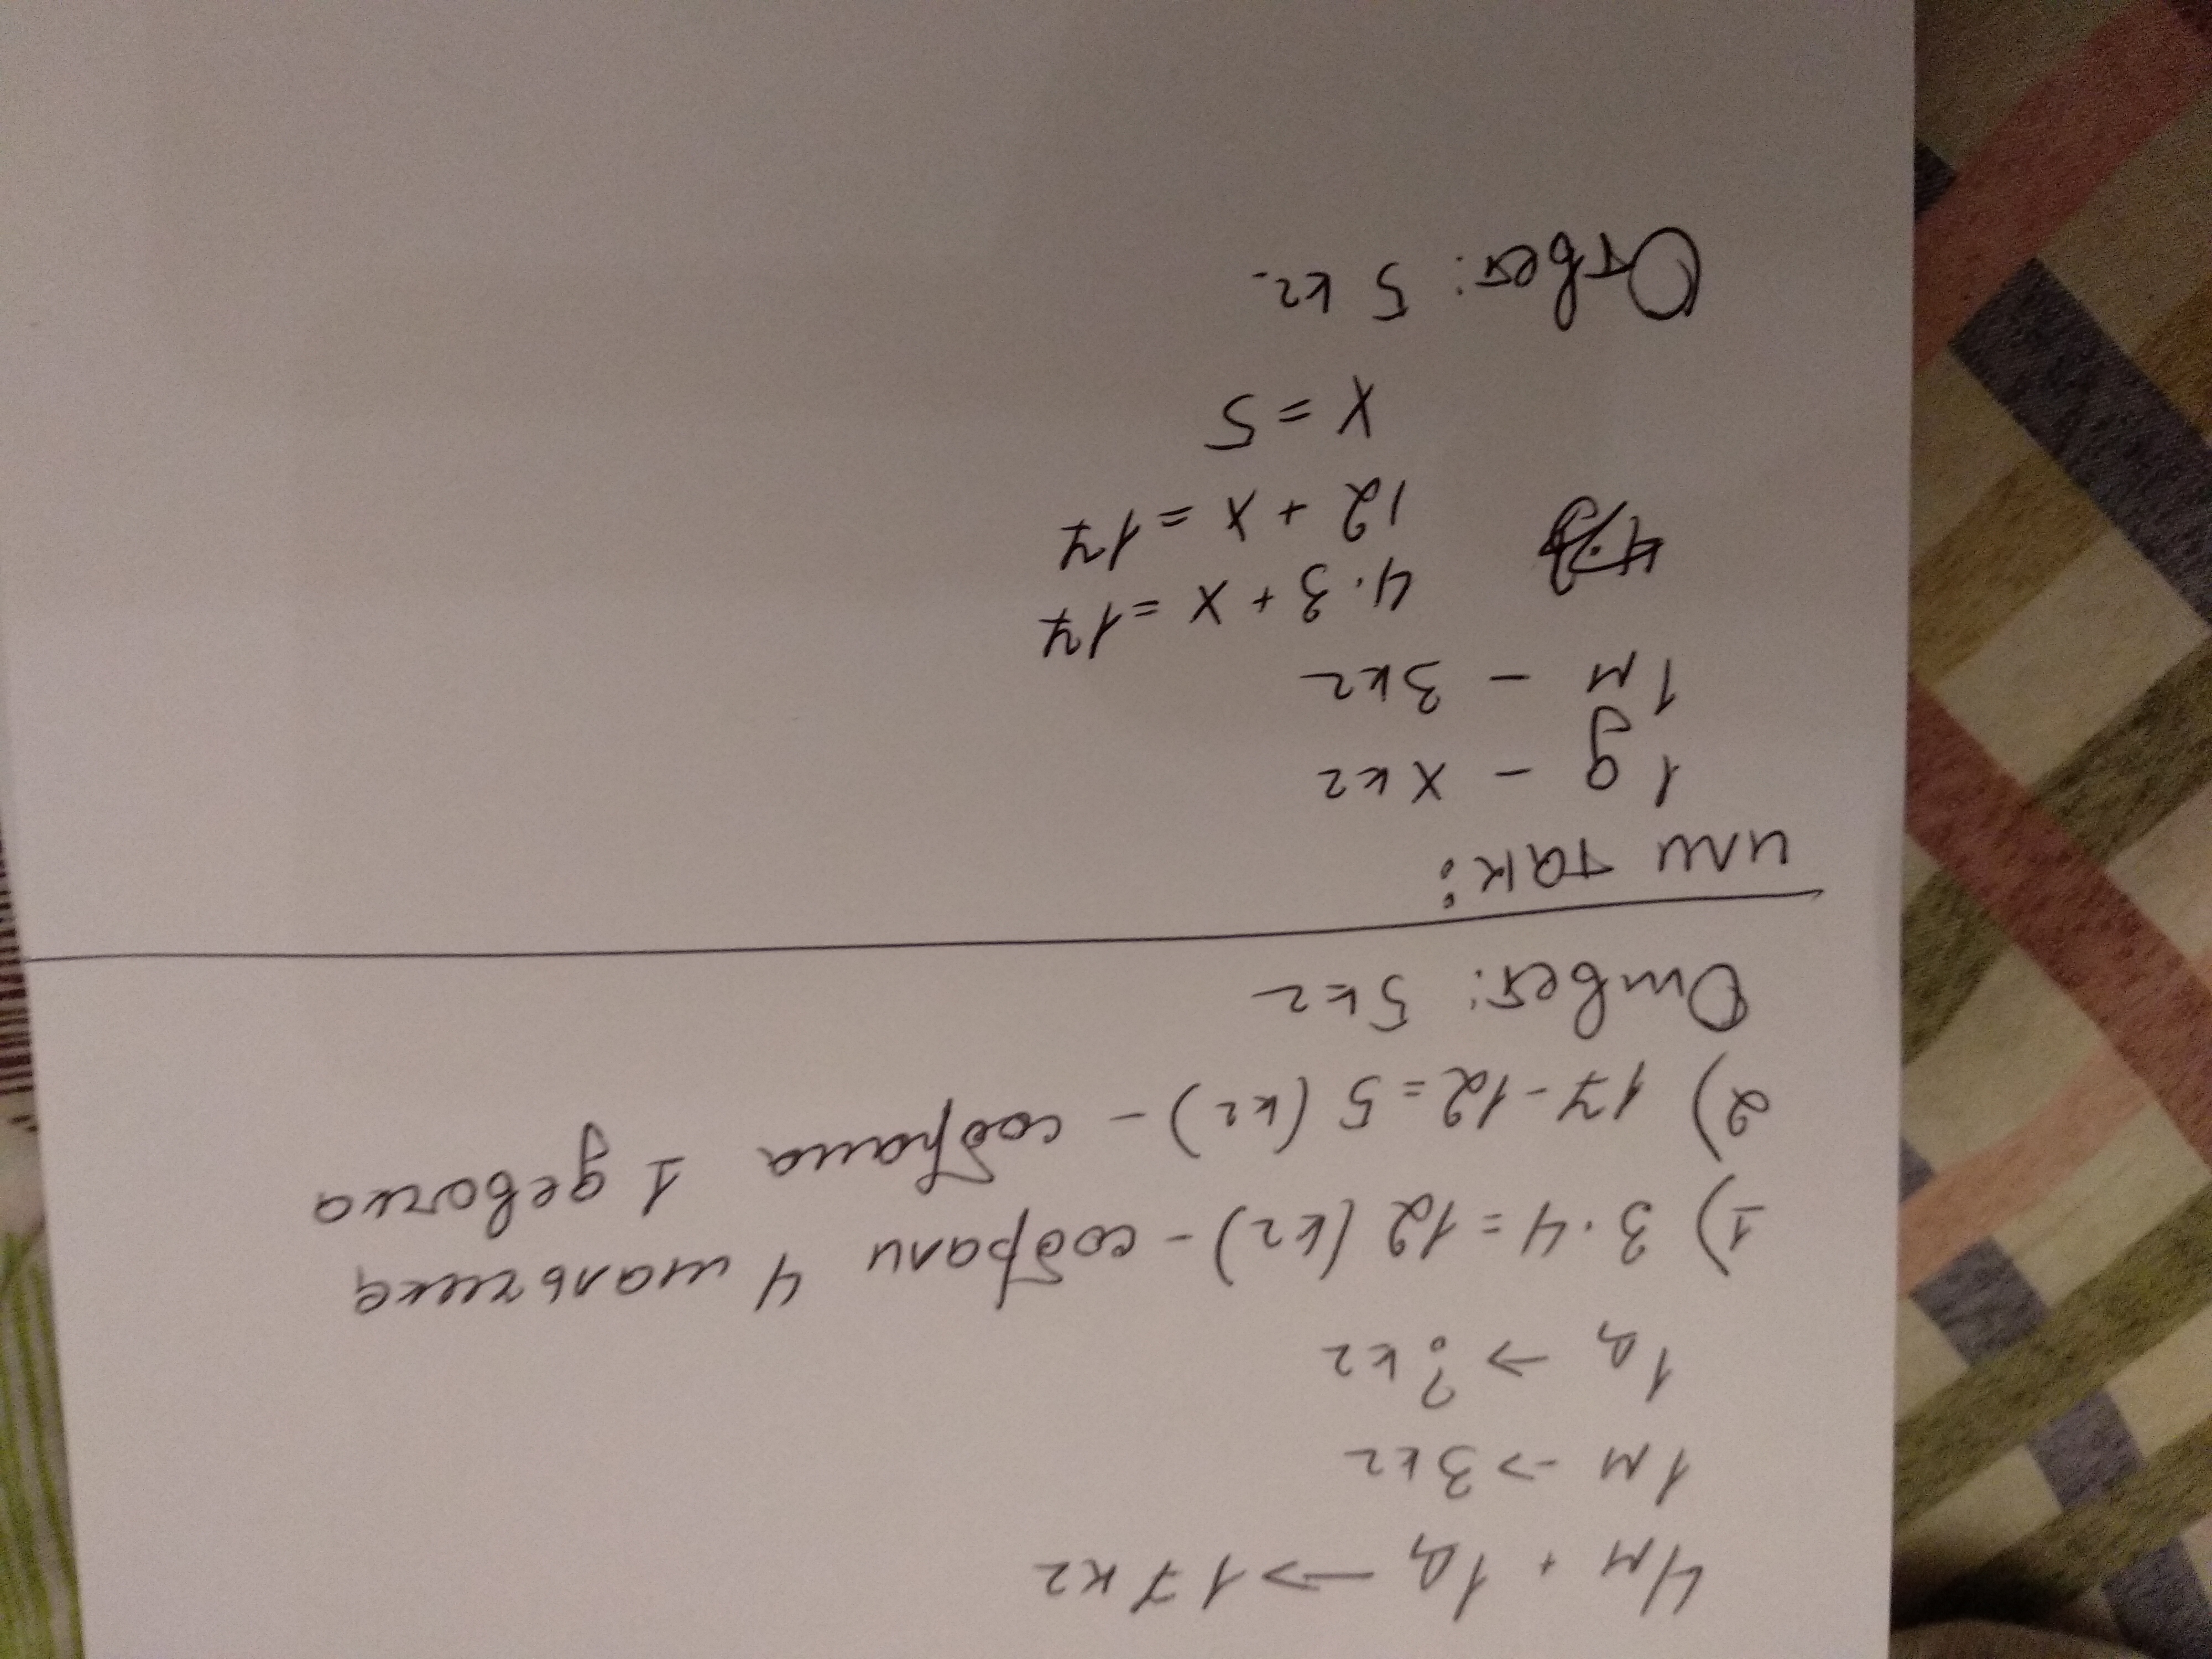 4м + 1д → 17 кг
1м → 3кг
1д → ? кг
1) 3·4 = 12 (кг) - собрали 4 мальчика
2) 17-12 = 5 (кг) - собрала 1 девочка
Ответ: 5кг
или так:
1д - x кг
1м - 3кг
4·3 + x = 17
12 + x = 17
x = 5
Ответ: 5 кг.